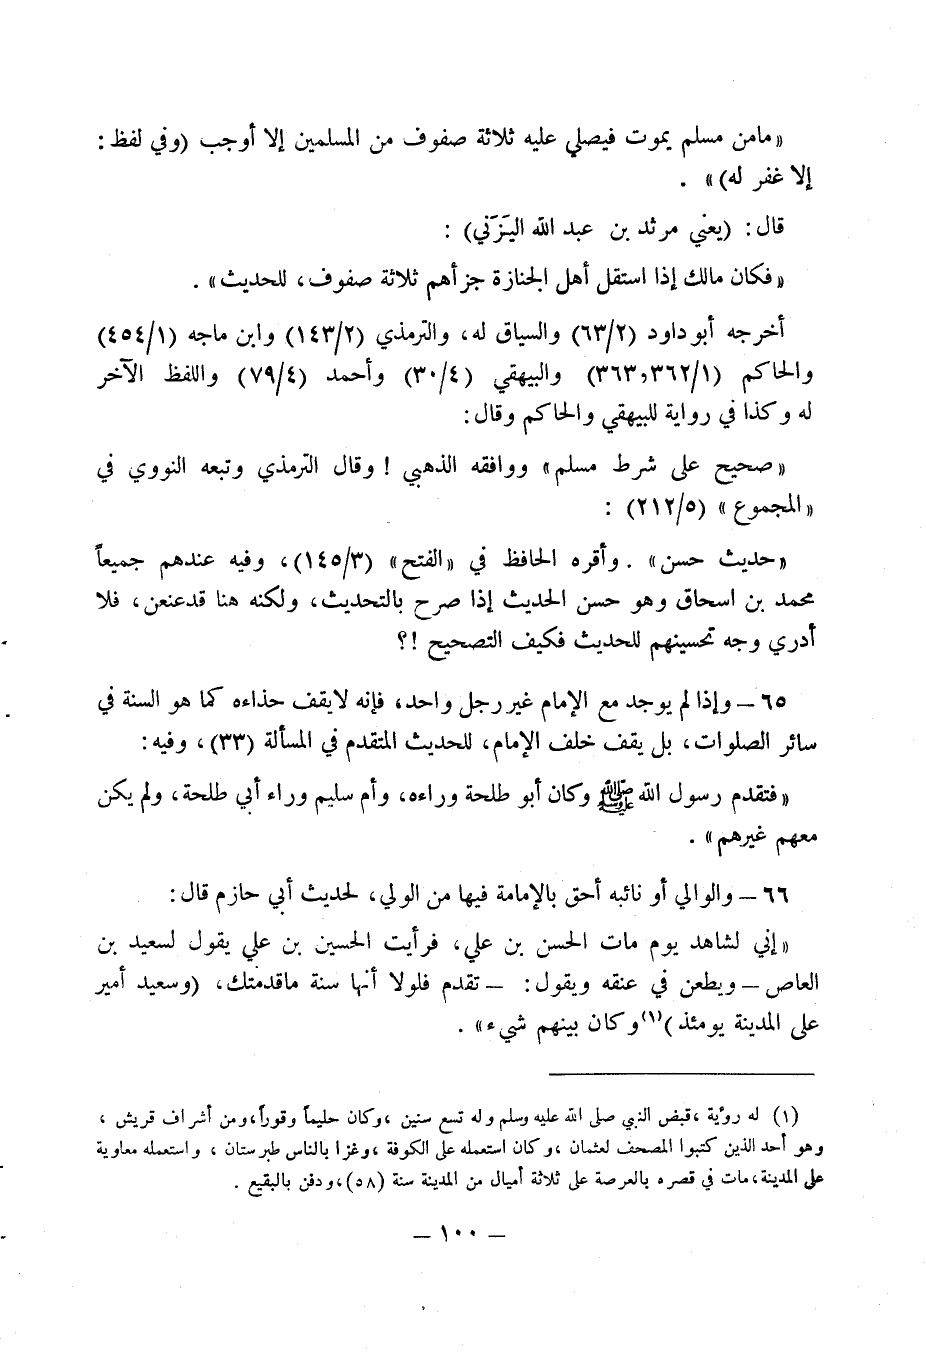 «مامن مسلم يموت فيصلي عليه ثلاثة صفوف من المسلمين إلا أوجب (وفي لفظ:
إلا غفر له)» .
قال: (يعني مرثد بن عبد الله اليَزَني) :
«فكان مالك إذا استقل أهل الجنازة جزأهم ثلاثة صفوف، للحديث» .
أخرجه أبو داود (٦٣/٢) والسياق له، والترمذي (١٤٣/٢) وابن ماجه (٤٥٤/١)
والحاكم (٣٦٣,٣٦٢/١) والبيهقي (٣٠/٤) وأحمد (٧٩/٤) واللفظ الآخر
له وكذا في رواية للبيهقي والحاكم وقال:
«صحيح على شرط مسلم» ووافقه الذهبي ! وقال الترمذي وتبعه النووي في
«المجموع» (٢١٢/٥) :
«حديث حسن» . وأقره الحافظ في «الفتح» (١٤٥/٣)، وفيه عندهم جميعاً
محمد بن اسحاق وهو حسن الحديث إذا صرح بالتحديث، ولكنه هنا قدعنعن، فلا
أدري وجه تحسينهم للحديث فكيف التصحيح !؟
٦٥ — وإذا لم يوجد مع الإمام غير رجل واحد، فإنه لايقف حذاءه كما هو السنة في
سائر الصلوات، بل يقف خلف الإمام، للحديث المتقدم في المسألة (٣٣)، وفيه:
«فتقدم رسول الله ﷺ وكان أبو طلحة وراءه، وأم سليم وراء أبي طلحة، ولم يكن
معهم غيرهم» .
٦٦ — والوالي أو نائبه أحق بالإمامة فيها من الولي، لحديث أبي حازم قال:
«إني لشاهد يوم مات الحسن بن علي، فرأيت الحسين بن علي يقول لسعيد بن
العاص — ويطعن في عنقه ويقول: — تقدم فلولا أنها سنة ماقدمتك، (وسعيد أمير
على المدينة يومئذ)(١) وكان بينهم شيء» .
(١) له رؤية ،قبض النبي صلى الله عليه وسلم وله تسع سنين ،وكان حليماً وقوراً،ومن أشراف قريش ،
وهو أحد الذين كتبوا المصحف لعثمان ،وكان استعمله على الكوفة ،وغزا بالناس طبرستان ، واستعمله معاوية
على المدينة،مات في قصره بالعرصة على ثلاثة أميال من المدينة سنة (٥٨)،ودفن بالبقيع .
— ١٠٠ —